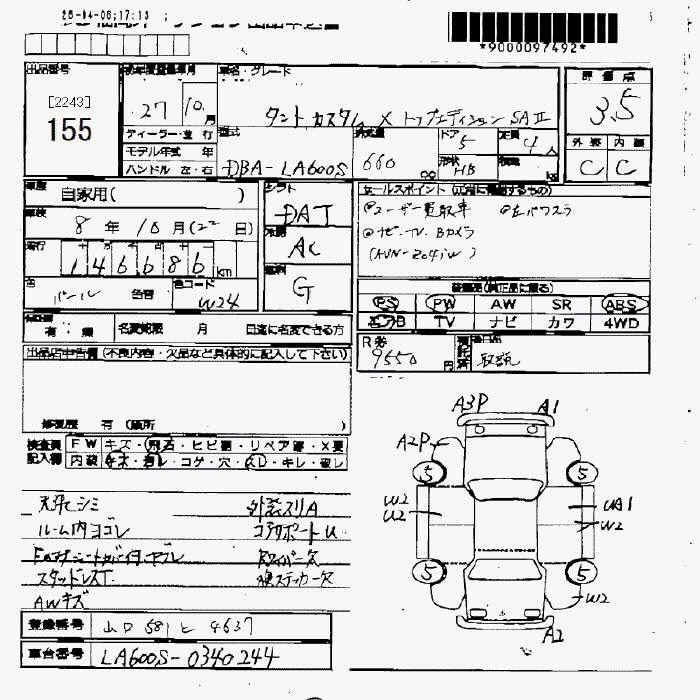 *9000097492*
出品番号
[2243]
155
初年度登録年月
27
10
月
車名・グレード
タント カスタム X トップエディション SAⅡ
評価点
3.5
ディーラー・並行
モデル年式 年
ハンドル 左・右
型式
DBA-LA600S
排気量
660
cc
ドア
5
形状
HB
定員
4
人
積載
kg
外装 内装
C C
車歴
自家用( )
車検
8 年 10 月(22 日)
走行
146686 km
色
パール
色替
色コード
W24
シフト
DAT
冷房
AC
燃料
G
セールスポイント (正常に稼動するもの)
ユーザー買取車
左パワスラ
ナビ・TV・Bカメラ
(AVN-Z04iW)
装備品(純正品に限る)
PS PW AW SR ABS
エアB TV ナビ カワ 4WD
有・無
名変期限 月 日迄に名変できる方
R券
9550
円
取説
出品店申告欄 (不良内容・欠品など具体的に記入して下さい)
修復歴 有 (箇所 )
検査員記入欄
FW キズ・飛石・ヒビ割・リペア跡・X要
内装 キズ・汚レ・コゲ・穴・スレ・キレ・破レ
天張シミ
外装スリA
ルーム内ヨゴレ
コアサポートU
Rワイパー欠
スタッドレスT
後ステッカー欠
AWキズ
登録番号
山口 581 ヒ 4637
車台番号
LA600S-0340244
A3P A1
A2P
5 5
W2
W2
UA1
W2
5 5
W2
A2